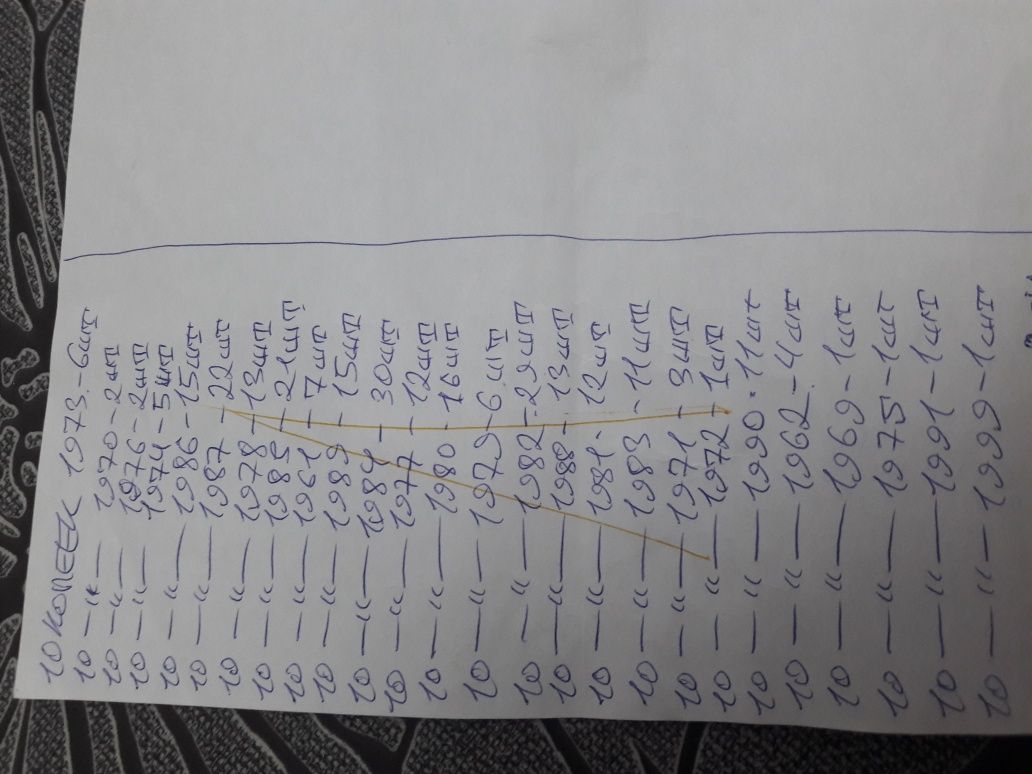 10 КОПЕЕК 1973.-6шт
10 —"— 1970-2шт
10 —"— 1976-2шт
10 —"— 1974-5шт
10 —"— 1986-15шт
10 —"— 1987-22шт
10 —"— 1978-13шт
10 —"— 1985-21шт
10 —"— 1961-7шт
10 —"— 1989-15шт
10 —"— 1984-30шт
10 —"— 1977-12шт
10 —"— 1980-16шт
10 —"— 1979-6шт
10 —"— 1982-29шт
10 —"— 1988-13шт
10 —"— 1981-12шт
10 —"— 1983-11шт
10 —"— 1971-3шт
10 —"— 1972-1шт
10 —"— 1990-11шт
10 —"— 1962-4шт
10 —"— 1969-1шт
10 —"— 1975-1шт
10 —"— 1991-1шт
10 —"— 1999-1шт